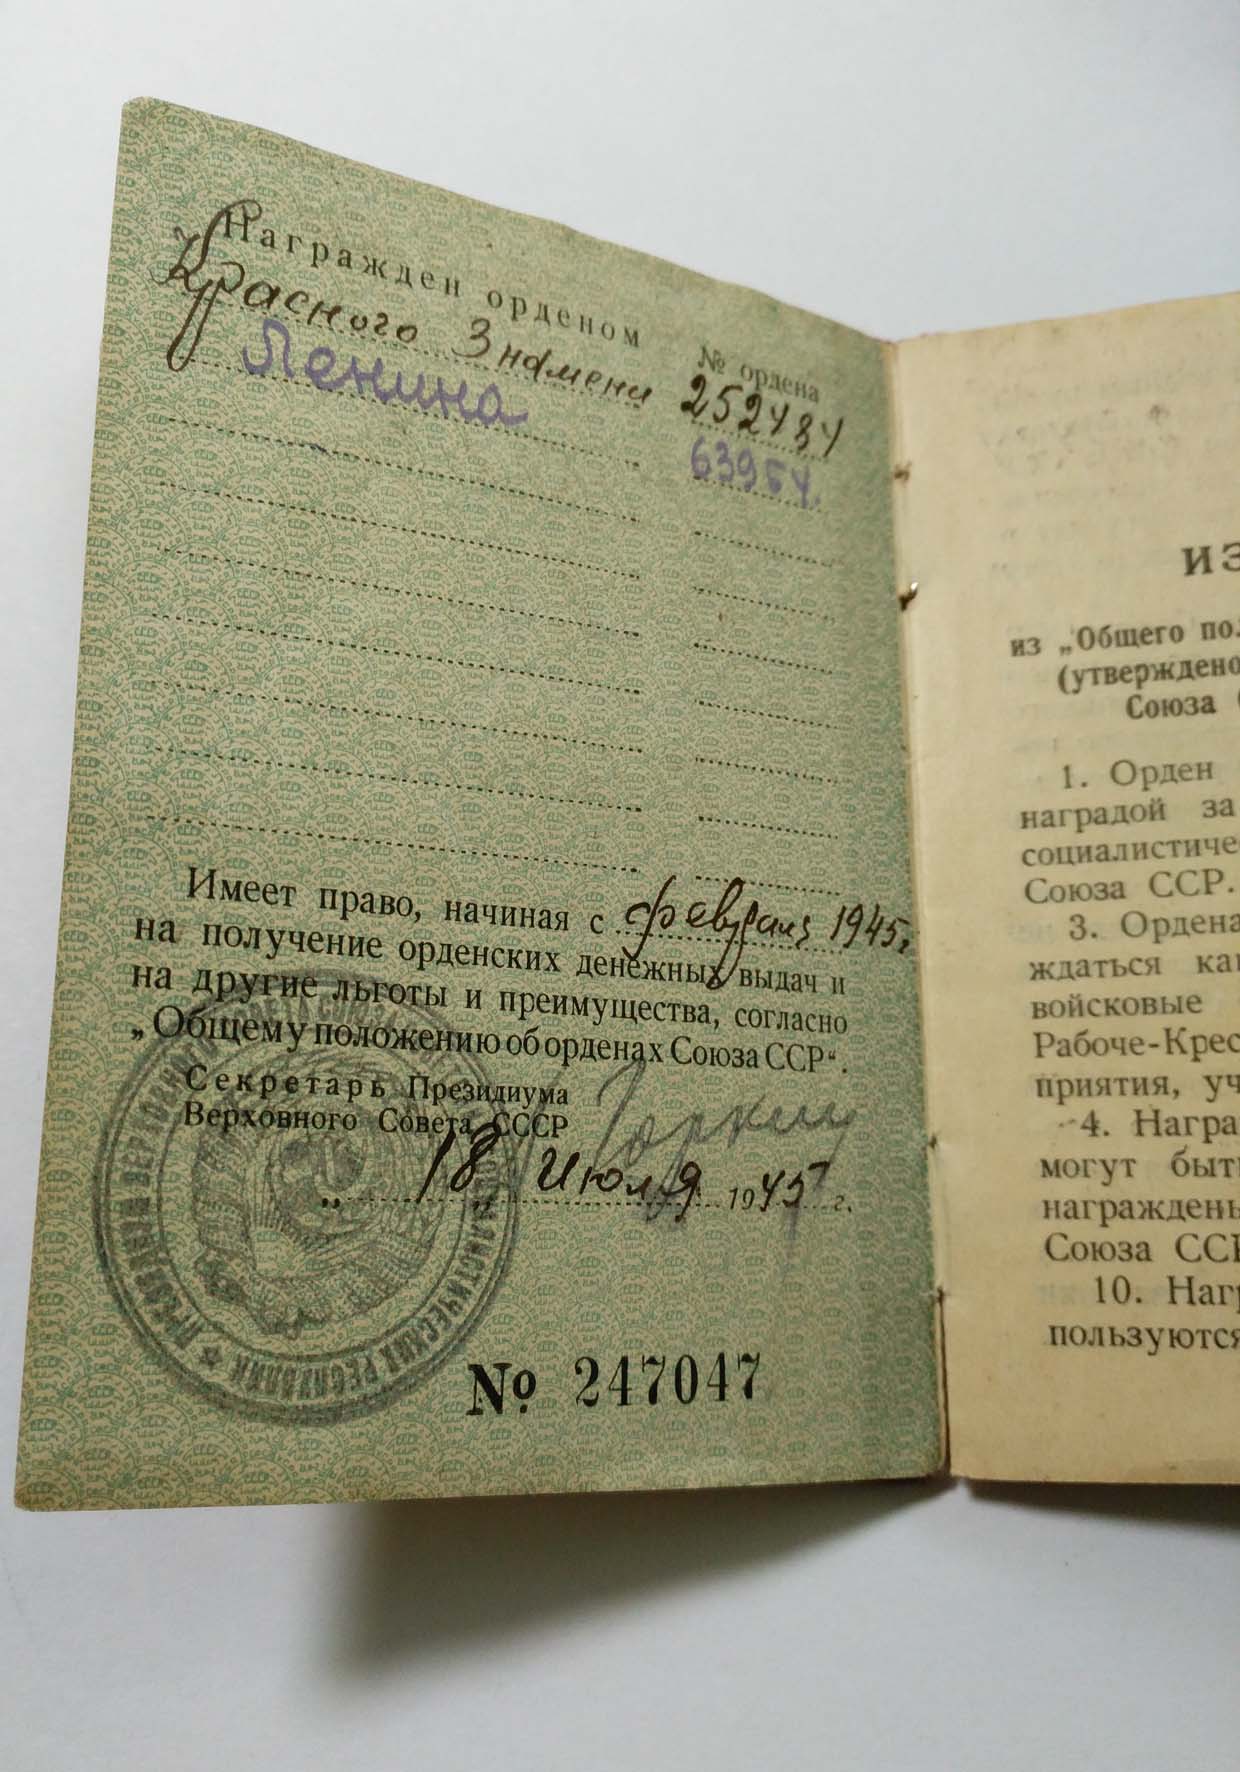 Награжден орденом
№ ордена
Красного Знамени 252484
Ленина 63954.
Имеет право, начиная с февраля 1945г.
на получение орденских денежных выдач и
на другие льготы и преимущества, согласно
„Общему положению об орденах Союза ССР“.
Секретарь Президиума
Верховного Совета СССР
Горкин
„18„ Июля 1945 г.
№ 247047
ИЗ
из „Общего пол
(утверждено
Союза
1. Орден
наградой за
социалистиче
Союза ССР.
3. Ордена
ждаться ка
войсковые
Рабоче-Крес
приятия, уч
4. Награ
могут быт
награжден
Союза ССР
10. Наг
пользуются